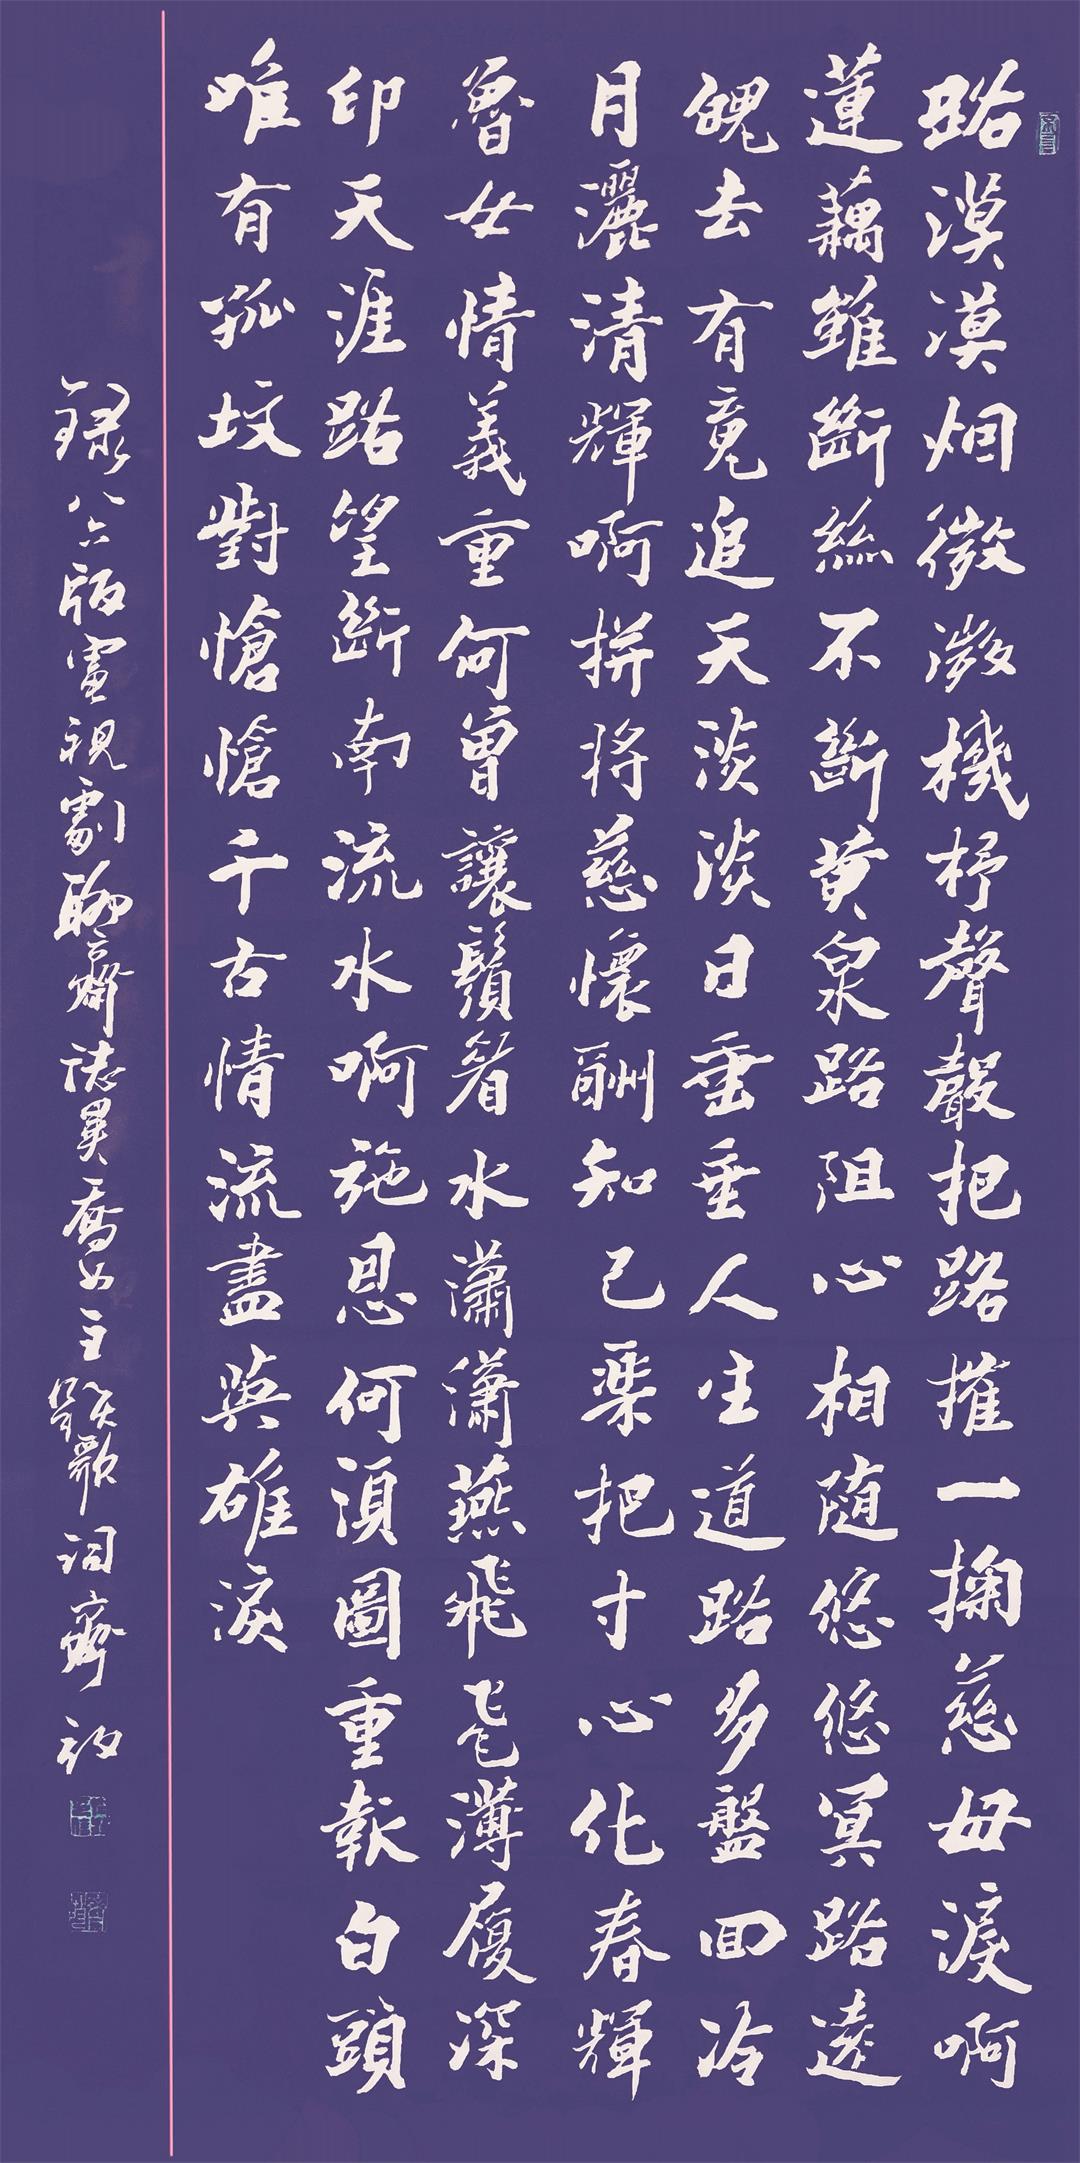 路漠漠烟微微機杼聲聲把路摧一掬慈母淚啊
蓮藕雖斷絲不斷黄泉路阻心相随悠悠冥路遠
魂去有竟追天淡淡日垂垂人生道路多盤回冷
月灑清輝啊拼将慈懷酬知己榘把寸心化春輝
魯女情義重何曾讓鬚眉水瀟瀟燕飛飛薄履深
印天涯路望斷南流水啊施恩何須圖重報白頭
唯有孤坟對愴愴千古情流盡與雄淚
録八六版電視劇聊齋誌異喬女主題歌詞齊